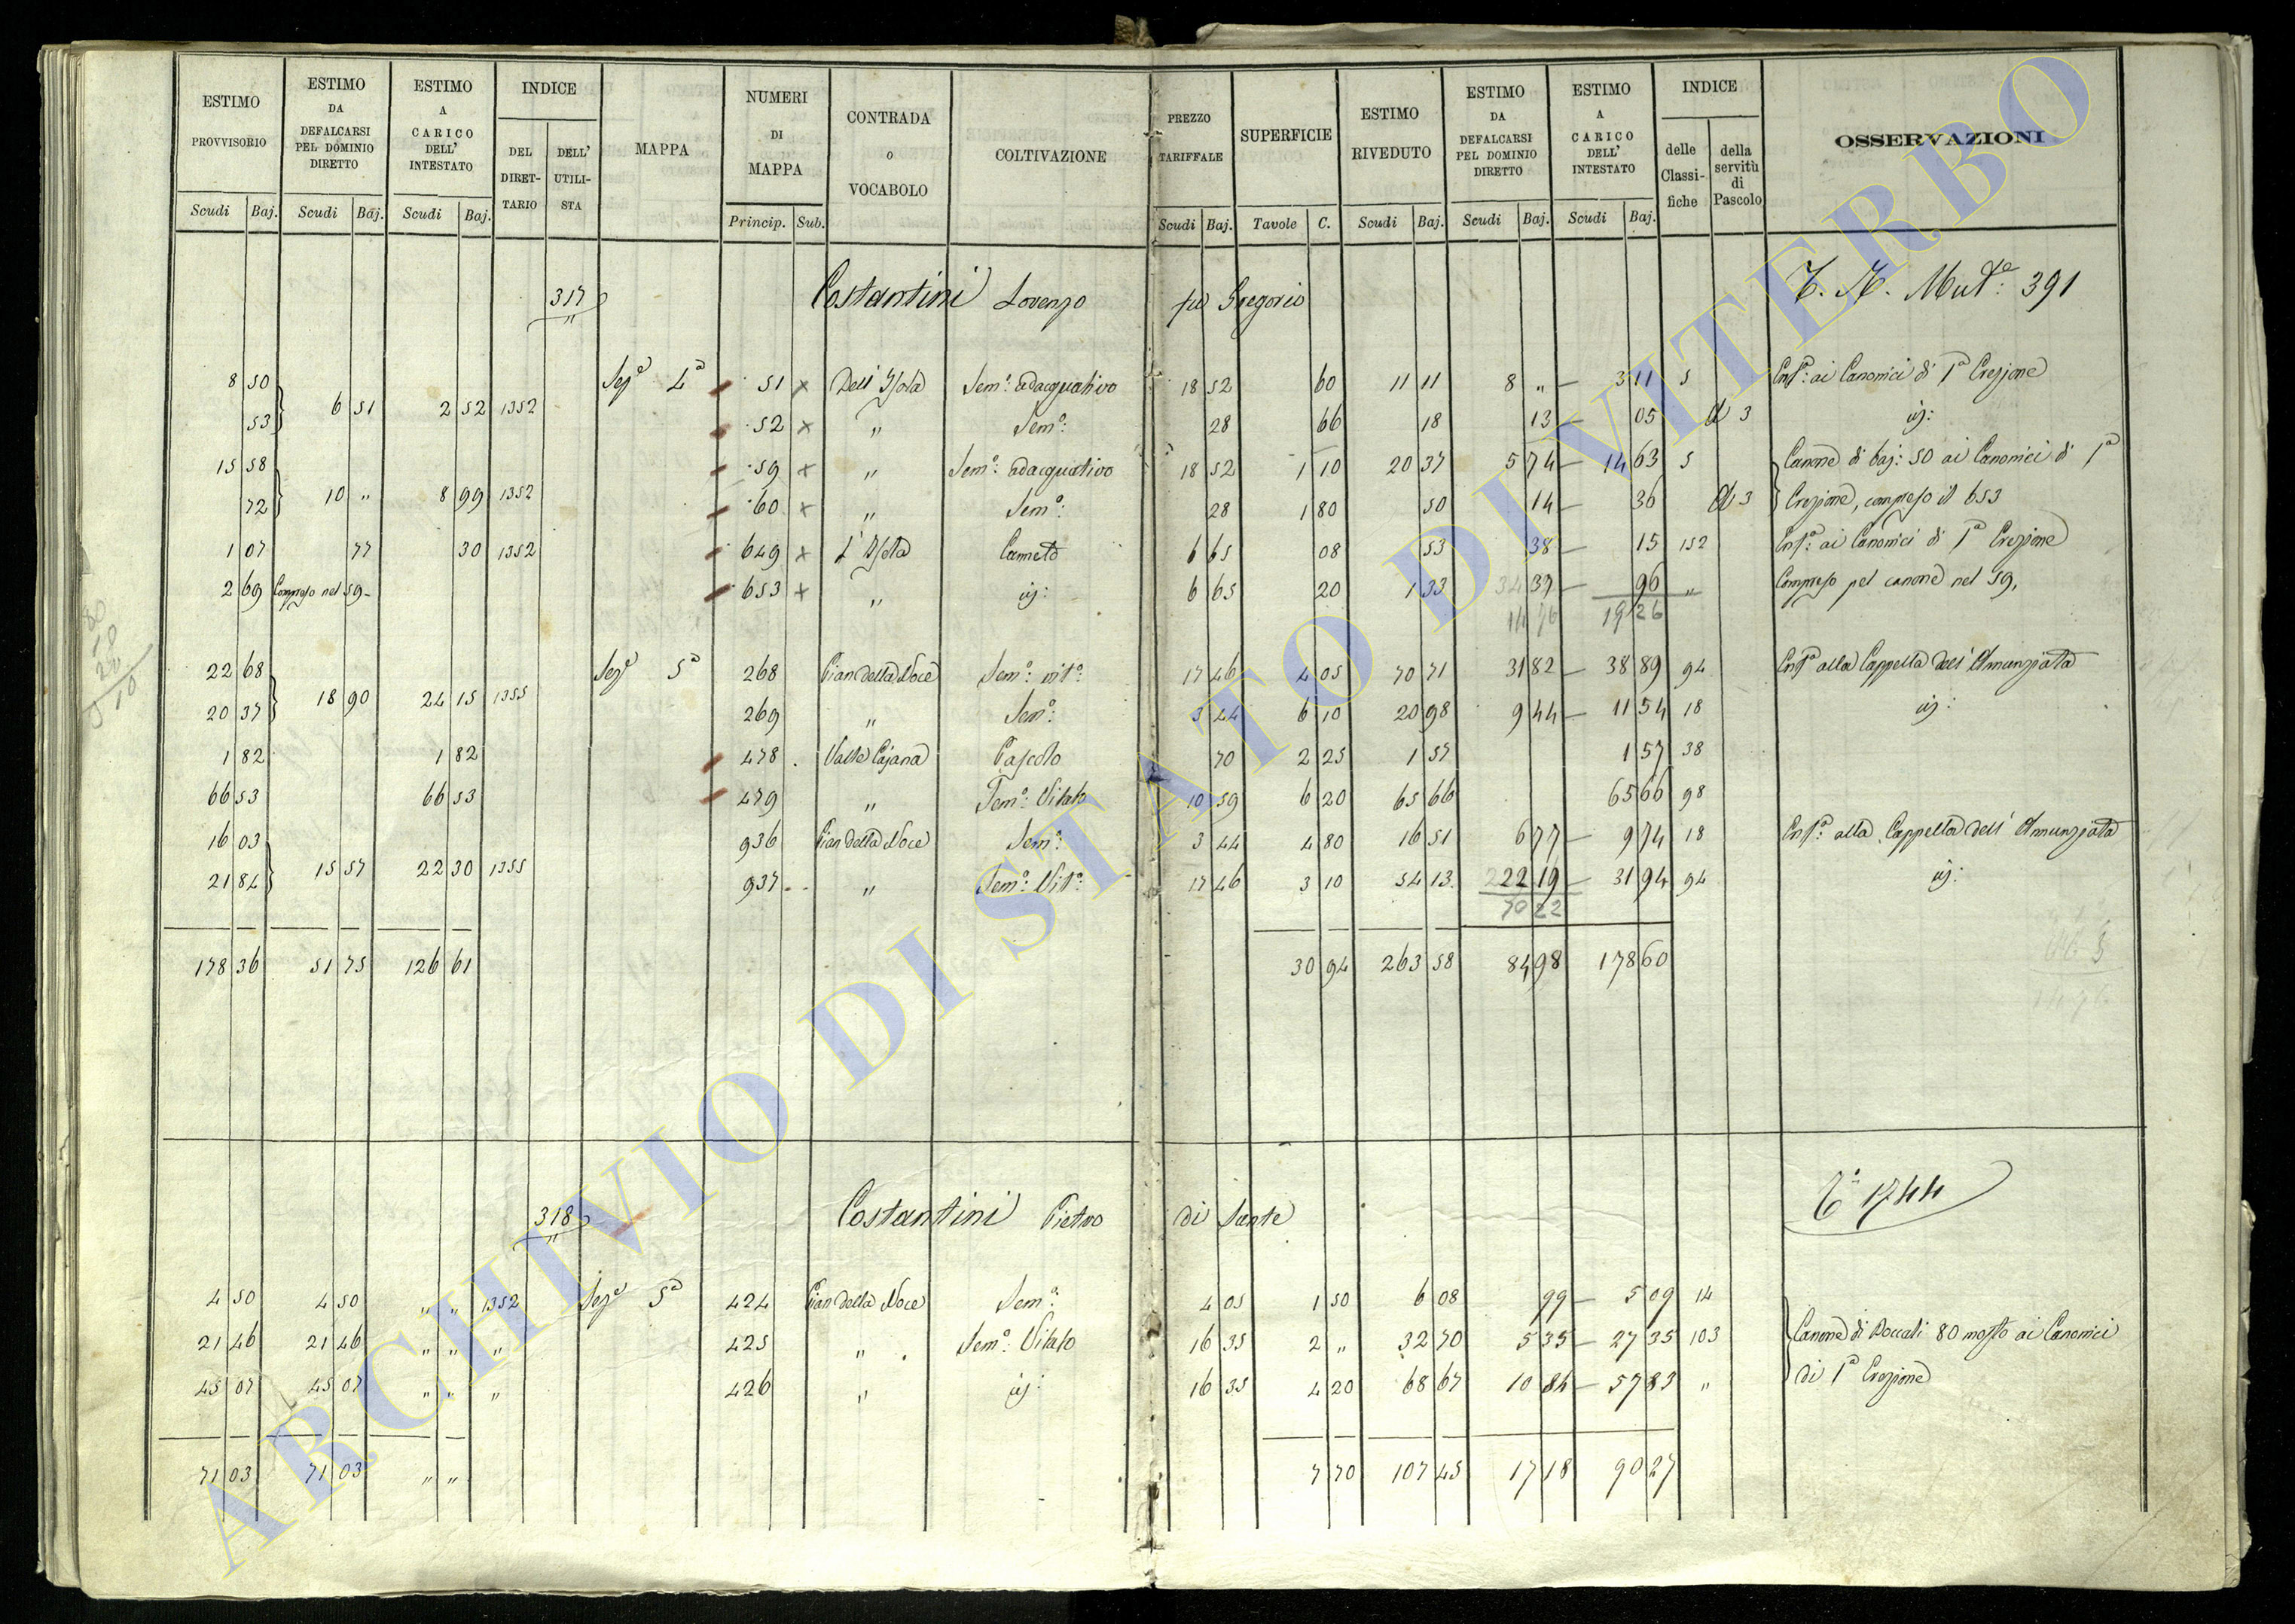 ESTIMO PROVVISORIO Scudi Baj. ESTIMO DA DEFALCARSI PEL DOMINIO DIRETTO Scudi Baj. ESTIMO A CARICO DELL' INTESTATO Scudi Baj. INDICE DEL DIRET-TARIO DELL' UTILI-STA MAPPA NUMERI DI MAPPA Princip. Sub. CONTRADA o VOCABOLO COLTIVAZIONE PREZZO TARIFFALE Scudi Baj. SUPERFICIE Tavole C. ESTIMO RIVEDUTO Scudi Baj. ESTIMO DA DEFALCARSI PEL DOMINIO DIRETTO Scudi Baj. ESTIMO A CARICO DELL' INTESTATO Scudi Baj. INDICE delle Classi-fiche della servitù di Pascolo OSSERVAZIONI
317 Costantini Lorenzo fu Gregorio Mut.e: 391
8 50 Sez.e 4a 51 x Dell' Isola Sem.o: adacquativo 18 52 60 11 11 8 „ — 3 11 5 Ent.a: ai Canonici di 1a Erezione
6 51 2 52 1352
53 52 x „ Sem.o: 28 66 18 13 — 05 A 3 id:
15 58 59 x „ Sem.o: adacquativo 18 52 1 10 20 37 5 74 — 14 63 5 Canone di baj: 50 ai Canonici di 1a
10 „ 8 99 1352
72 60 x „ Sem.o: 28 1 80 50 14 — 36 A 3 Erezione, compreso il 653
1 07 77 30 1352 649 x L' Isola Canneto 6 65 08 53 38 — 15 152 Ent.a: ai Canonici di 1a Erezione
2 69 Compreso nel 59 - 653 x „ id: 6 65 20 1 33 37 — 96 „ Compreso pel canone nel 59,
14 76 19 26
22 68 Sez.e 5a 268 Pian della Noce Sem.o: vit.o: 17 46 4 05 70 71 31 82 — 38 89 94 Ent.a alla Cappella dell' Annunziata
18 90 24 15 1355
20 37 269 „ Sem.o: 3 44 6 10 20 98 9 44 — 11 54 18 id:
1 82 1 82 478 Valle Cajana Pascolo 70 2 25 1 57 1 57 38
66 53 66 53 479 „ Sem.o: Vitato 10 59 6 20 65 66 65 66 98
16 03 936 Pian della Noce Sem.o: 3 44 4 80 16 51 6 77 — 9 74 18 Ent.a: alla Cappella dell' Annunziata
15 57 22 30 1355
21 84 937 „ Sem.o: Vit.o: 17 46 3 10 54 13 22 19 — 31 94 94 id:
70 22
178 36 51 75 126 61 30 94 263 58 84 98 178 60
318 Costantini Pietro di Sante 1744
4 50 4 50 „ „ 1352 Sez.e 5a 424 Pian della Noce Sem.o: 4 05 1 50 6 08 99 — 5 09 14
21 46 21 46 „ „ „ 425 „ Sem.o: Vitato 16 35 2 „ 32 70 5 35 — 27 35 103 Canone di Boccali 80 mosto ai Canonici
45 07 45 07 „ „ „ 426 „ id: 16 35 4 20 68 67 10 84 — 57 83 „ di 1a Erezione
71 03 71 03 „ „ 7 70 107 45 17 18 90 27
ARCHIVIO DI STATO DI VITERBO